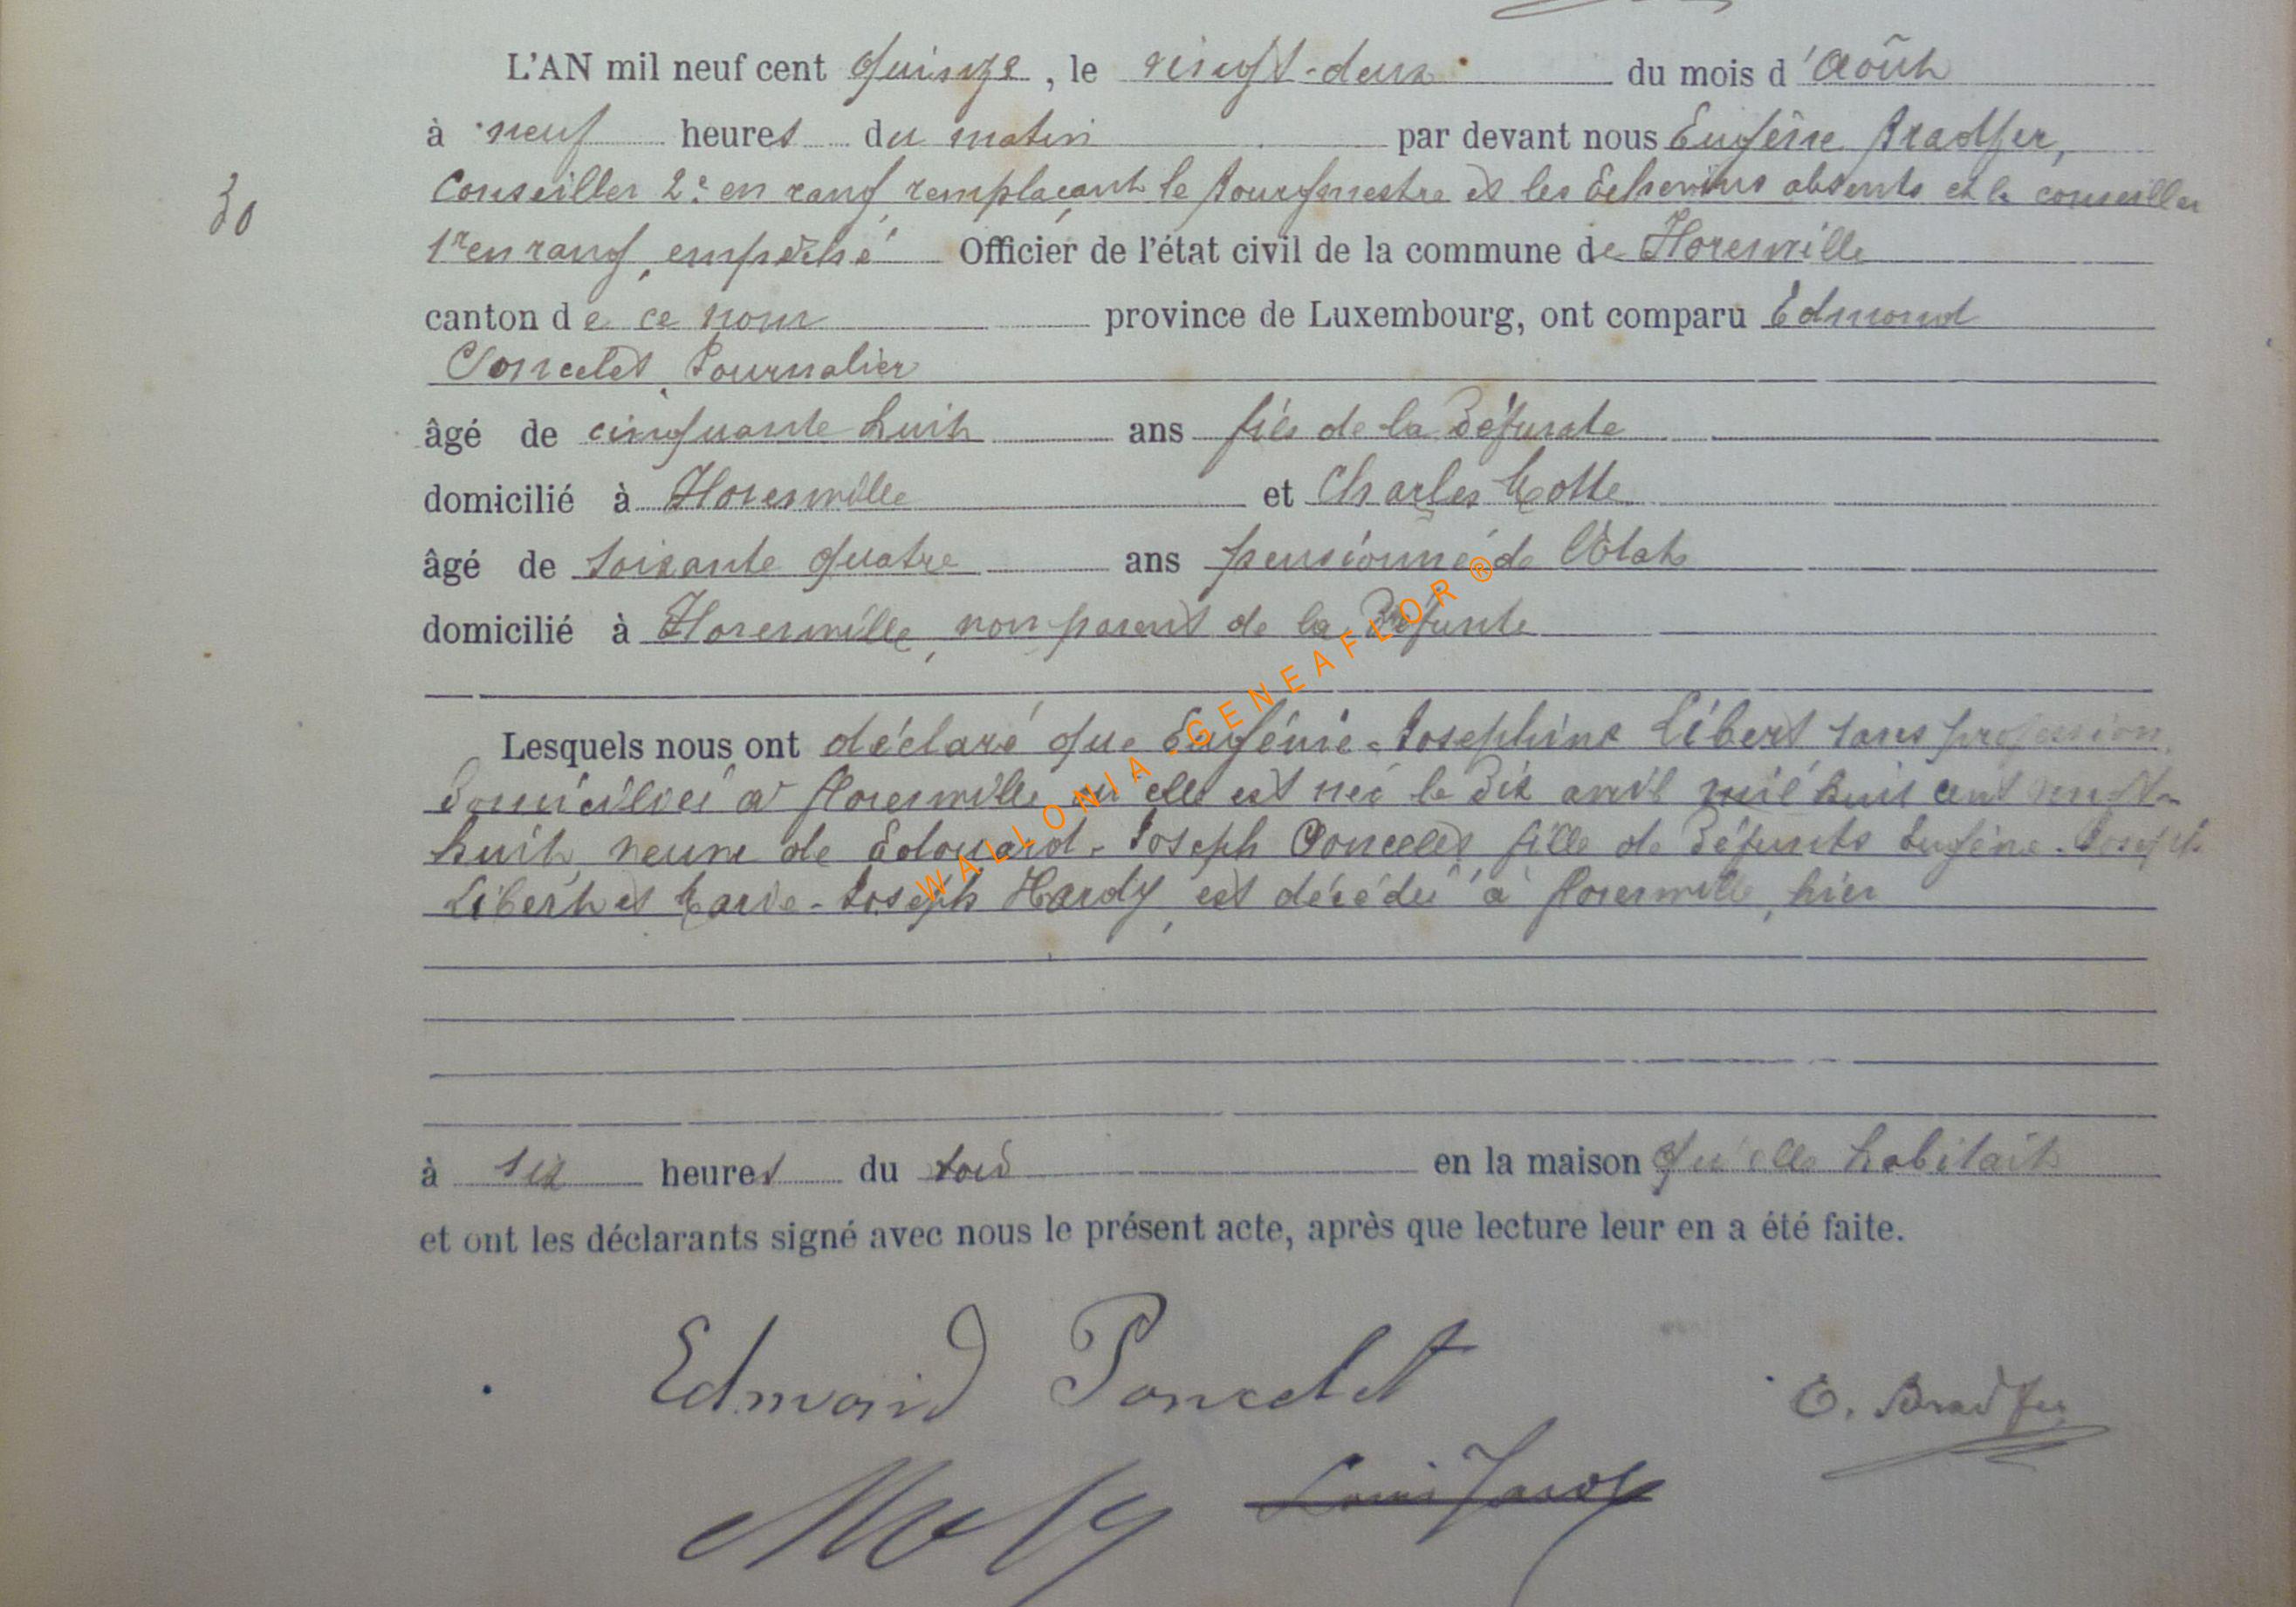 L'AN mil neuf cent quinze, le vingt-deux du mois d'Août
à neuf heures du matin par devant nous Eugène Bradfer,
Conseiller 2e en rang, remplaçant le bourgmestre et les Echevins absents et le conseiller
30
1er en rang, empêché Officier de l'état civil de la commune de Florenville
canton de ce nom province de Luxembourg, ont comparu Edmond
Poncelet, Journalier
âgé de cinquante huit ans fils de la Défunte
domicilié à Florenville et Charles Motte
âgé de soixante quatre ans pensionné de l'Etat
domicilié à Florenville, non parent de la Défunte
Lesquels nous ont déclaré que Eugénie-Josephine Libert sans profession,
Domiciliée à Florenville où elle est née le Dix avril mil huit cent vingt-
huit, veuve de Edouard-Joseph Poncelet fille de Défunts Eugène-Joseph
Libert et Marie-Joseph Hardy, est décédée à Florenville, hier
à six heures du soir en la maison qu'elle habitait
et ont les déclarants signé avec nous le présent acte, après que lecture leur en a été faite.
Edmond Poncelet
E. Bradfer
WALLONIA.GENEAFLOR®